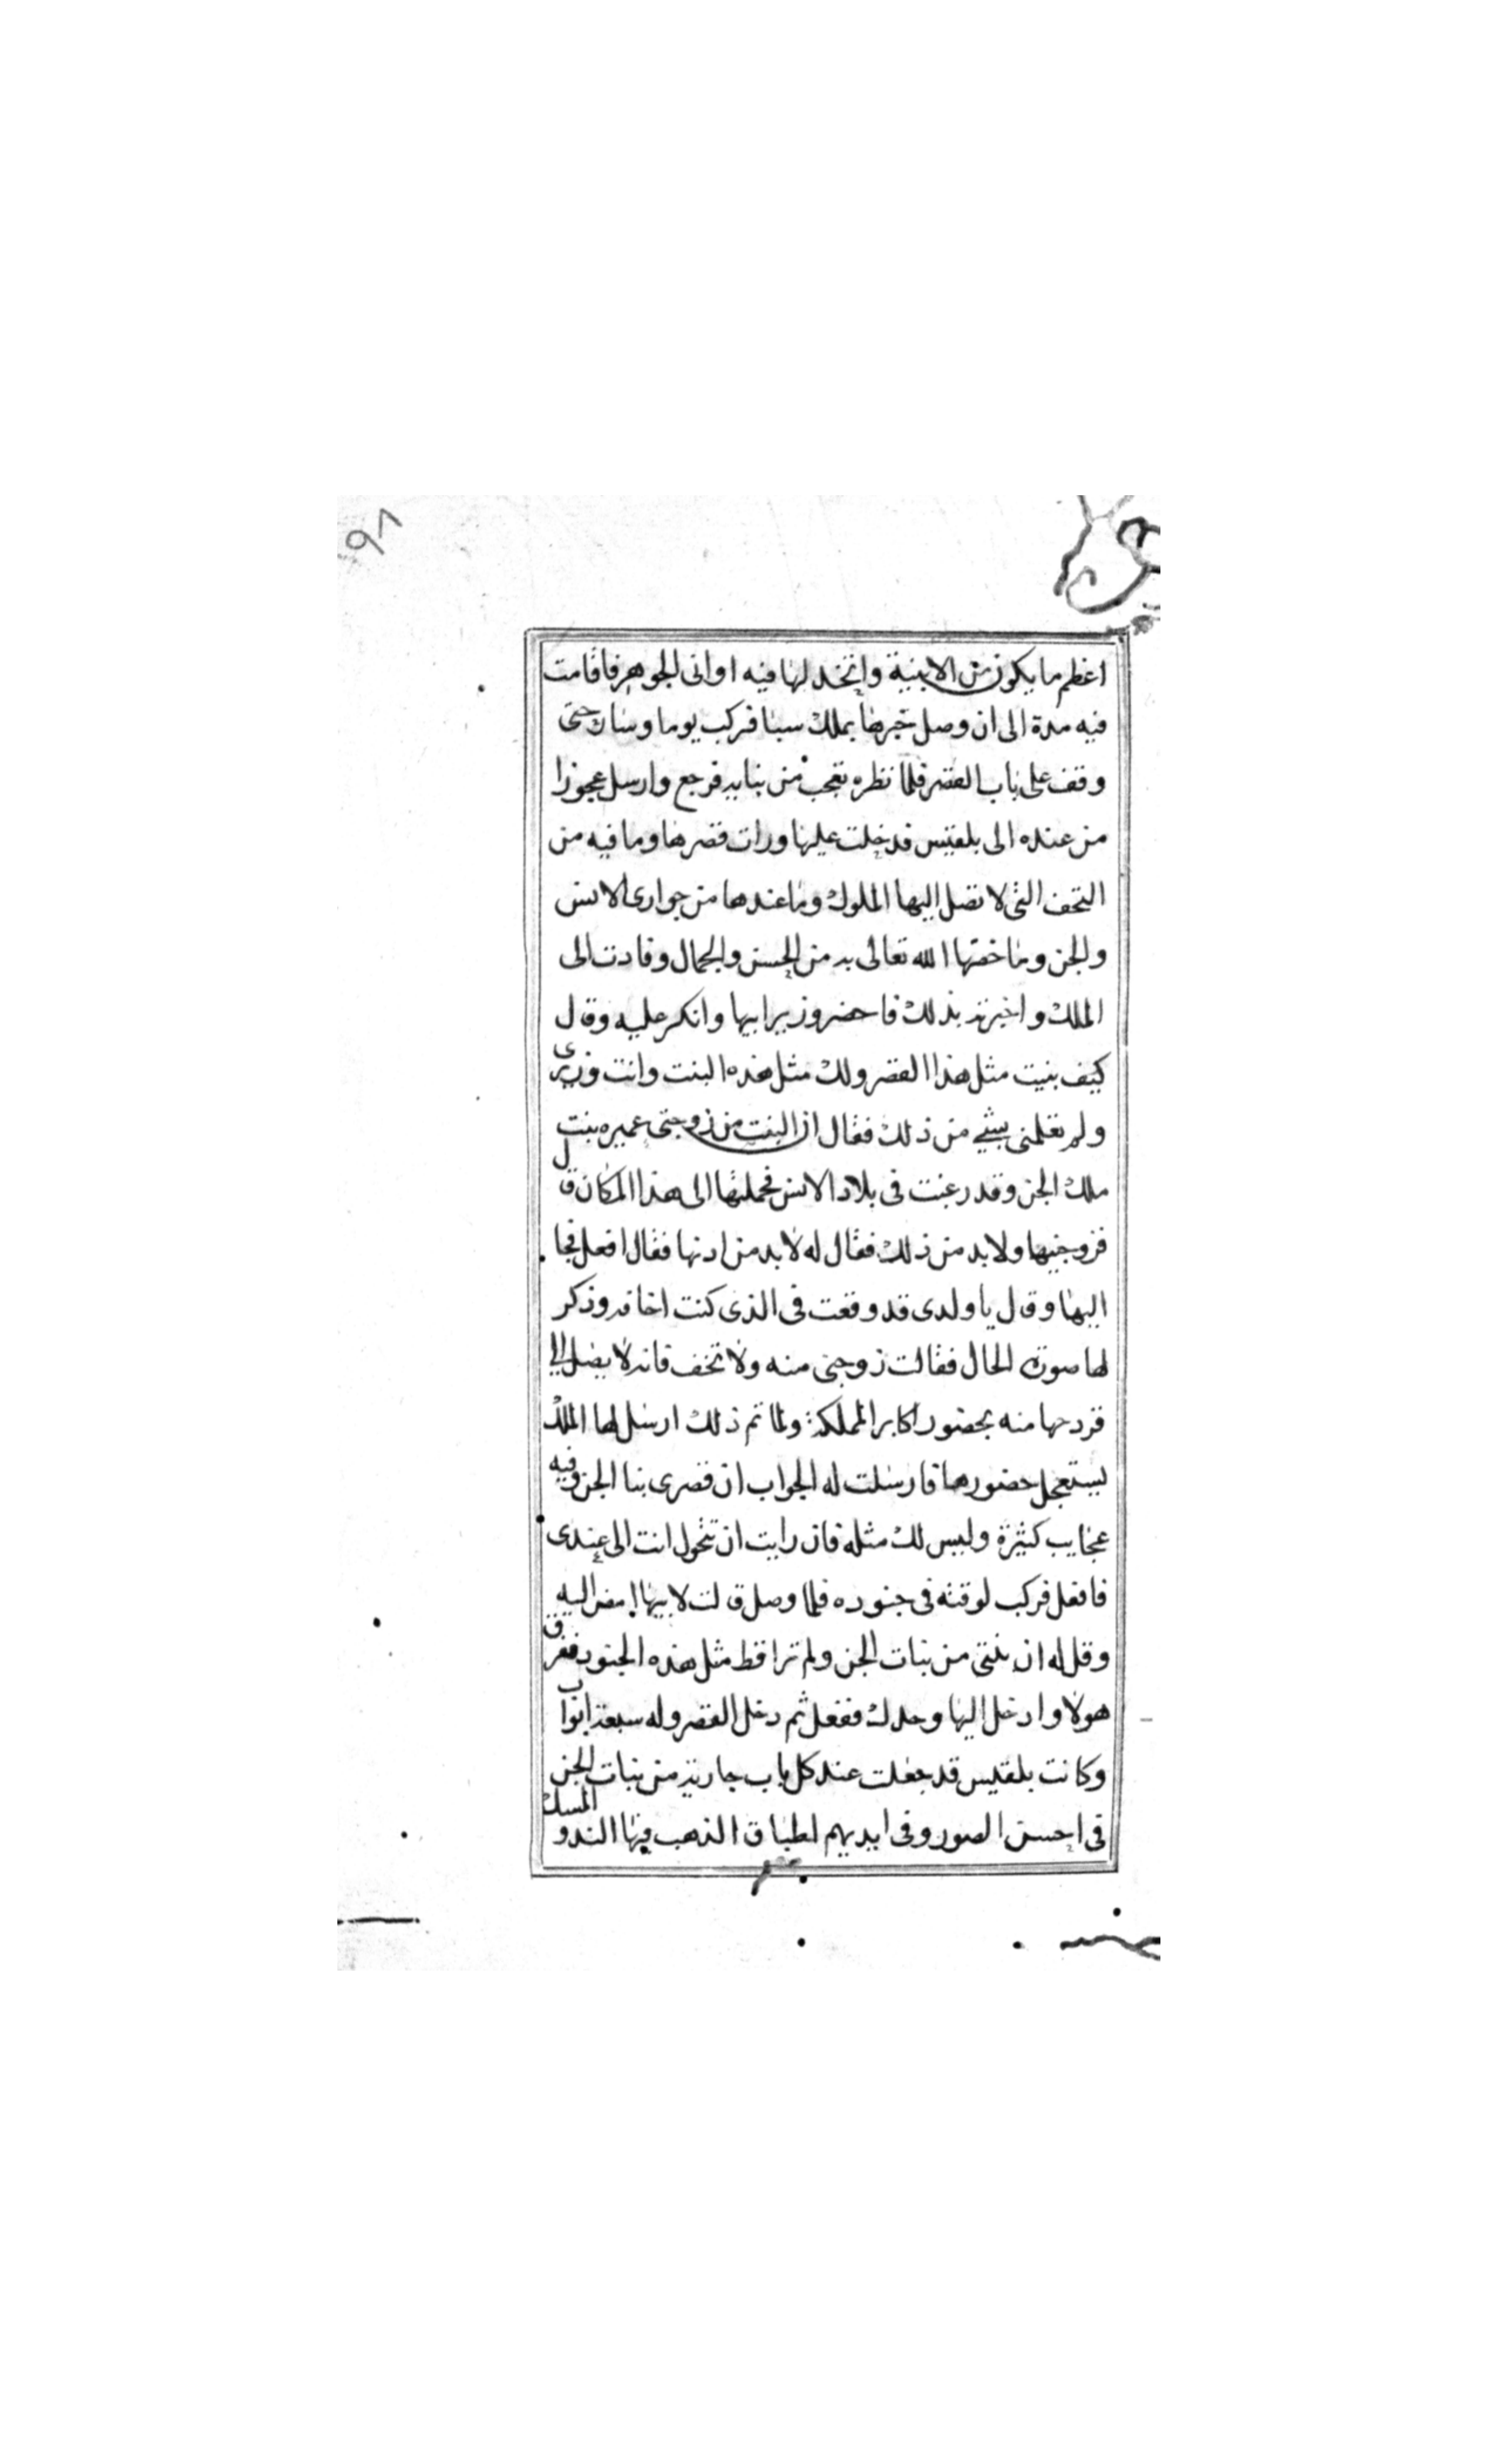 ٩٨
اعظم ما يكون من الابنية واتخذ لها فيه اوانى الجوهر فاقامت
فيه مدة الى ان وصل خبرها بملك سبا فركب يوما وسار حتى
وقف على باب القصر فلما نظره تعجب من بنايه فرجع وارسل عجوزا
من عنده الى بلقيس فدخلت عليها ورات قصرها وما فيه من
التحف التى لا تصل اليها الملوك وما عندها من جوارى الانس
والجن وما خصها الله تعالى به من الحسن والجمال وعادت الى
الملك واخبرته بذلك فاحضر وزيره ابيها وانكر عليه وقال
كيف بنيت مثل هذا القصر ولك مثل هذه البنت وانت وزيرى
ولم تعلمنى بشئ من ذلك فقال ان البنت من زوجتى عميره بنت
ملك الجن وقد رغبت فى بلاد الانس فحملتها الى هذا المكان قال
فزوجنيها ولابد من ذلك فقال له لابد من اذنها فقال افعل فجا
اليها وقال يا ولدى قد وقعت فى الذى كنت اخافه وذكر
لها صورة الحال فقالت زوجنى منه ولا تخف فانه لا يصل الي
فزوجها منه بحضور اكابر المملكة ولما تم ذلك ارسل لها الملك
يستعجل حضورها فارسلت له الجواب ان قصرى بنا الجن وفيه
عجايب كثيرة وليس لك مثله فان رايت ان تتحول انت الى عندى
فافعل فركب لوقته فى جنوده فلما وصل قالت لابيها امض اليه
وقل له ان بنتى من بنات الجن ولم ترا قط مثل هذه الجنود ففرق
هولا وادخل اليها وحدك ففعل ثم دخل القصر وله سبعة ابواب
وكانت بلقيس قد جعلت عند كل باب جارية من بنات الجن
فى احسن الصور وفى ايديهم اطباق الذهب فيها الند والمسك